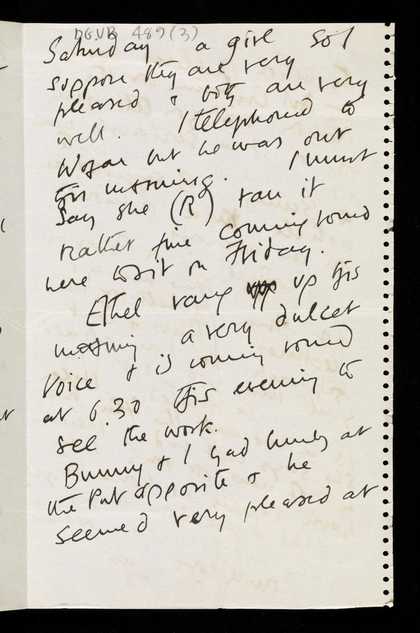 DG.VB 489 (3)
Saturday a girl so I
suppose they are very
pleased & both are very
well. I telephoned to
Wogan but he was out
this morning. I must
say she (R) ran it
rather fine coming round
here to sit on Friday.
Ethel rang up this
morning a very dulcet
voice & is coming round
at 6.30 this evening to
see the work.
Bunny & I had lunch at
the Pub opposite & he
seemed very pleased at